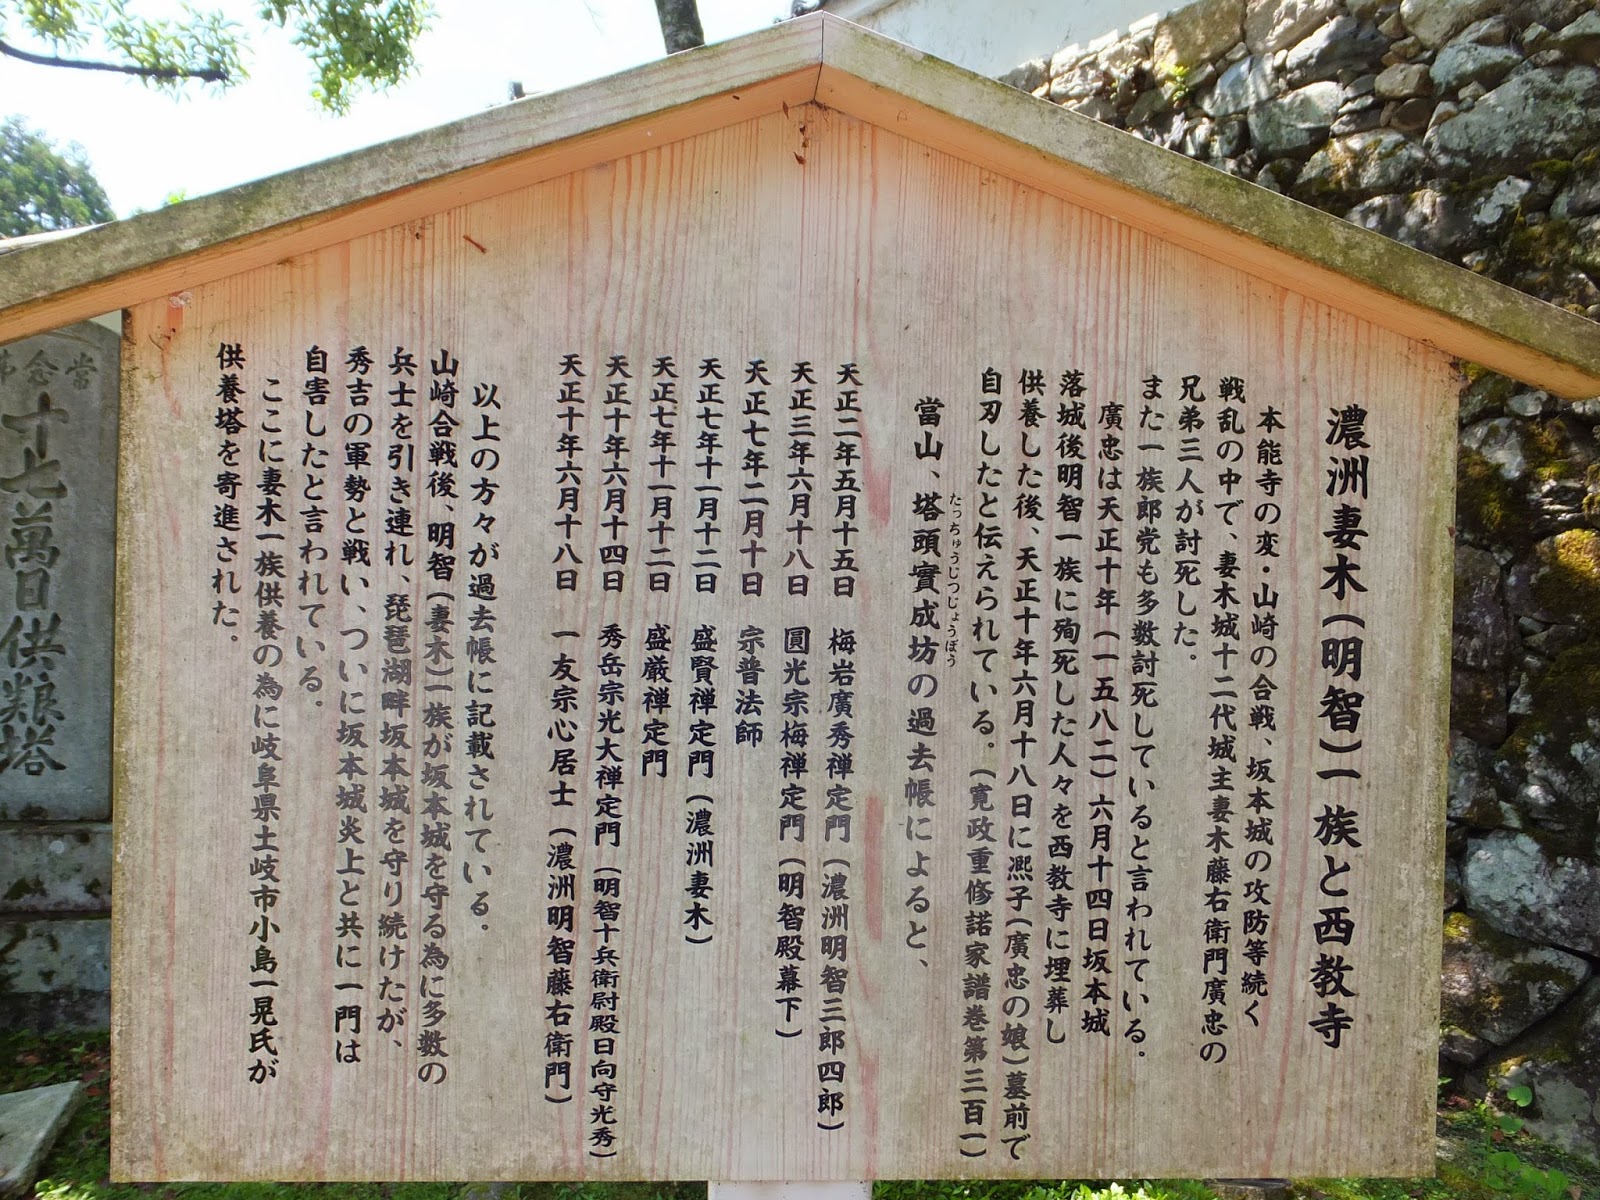 濃洲妻木（明智）一族と西教寺
本能寺の変・山崎の合戦、坂本城の攻防等続く
戦乱の中で、妻木城十二代城主妻木藤右衛門廣忠の
兄弟三人が討死した。
また一族郎党も多数討死していると言われている。
廣忠は天正十年（一五八二）六月十四日坂本城
落城後明智一族に殉死した人々を西教寺に埋葬し
供養した後、天正十年六月十八日に凞子（廣忠の娘）墓前で
自刃したと伝えられている。（寛政重修諾家譜巻第三百一）
當山、塔頭實成坊の過去帳によると、
たっちゅうじつじょうぼう
天正二年五月十五日　梅岩廣秀禅定門（濃洲明智三郎四郎）
天正三年六月十八日　圓光宗梅禅定門（明智殿幕下）
天正七年二月十日　宗普法師
天正七年十一月十二日　盛賢禅定門（濃洲妻木）
天正七年十一月十二日　盛厳禅定門
天正十年六月十四日　秀岳宗光大禅定門（明智十兵衛尉殿日向守光秀）
天正十年六月十八日　一友宗心居士（濃洲明智藤右衛門）
以上の方々が過去帳に記載されている。
山崎合戦後、明智（妻木）一族が坂本城を守る為に多数の
兵士を引き連れ、琵琶湖畔坂本城を守り続けたが、
秀吉の軍勢と戦い、ついに坂本城炎上と共に一門は
自害したと言われている。
ここに妻木一族供養の為に岐阜県土岐市小島一晃氏が
供養塔を寄進された。
當念佛
十七萬日供粮塔